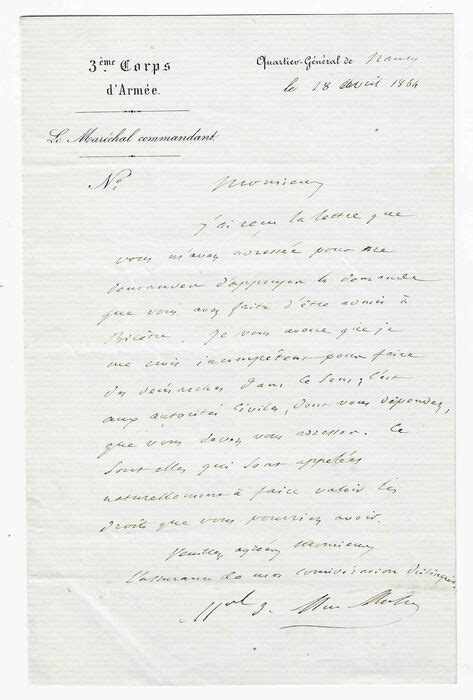 3ème Corps
d'Armée.
Le Maréchal commandant.
Quartier-Général de Nancy
le 18 avril 1864
No.
Monsieur
j'ai reçu la lettre que
vous m'avez adressée pour me
demander d'appuyer la demande
que vous avez faite d'être admis à
Bicêtre. Je vous avoue que je
me crois incompétent pour faire
des démarches dans ce sens; c'est
aux autorités civiles, dont vous dépendez,
que vous devez vous adresser. Ce
sont elles qui sont appelées
naturellement à faire valoir les
droits que vous pourriez avoir.
Veuillez agréer Monsieur
l'assurance de ma considération distinguée.
Mal